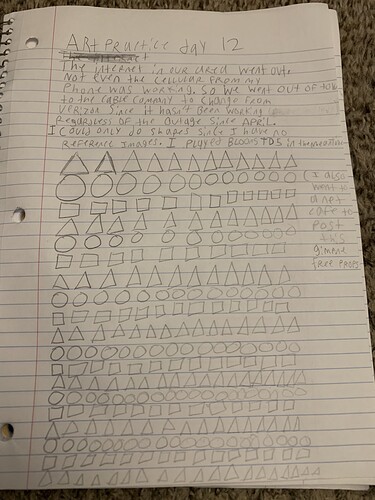 ARt PRactice day 12
The internet in our area went out.
Not even the cellular from my
Phone was working. So we went out of town
to the cable company to change from
Verizon Since it hasn't been working
Regardless of the outage since April.
I could only do shapes since I have no
Reference images. I played Bloons TD5 in
(I also
went to
a net
cafe to
Post
this
gimme
free props